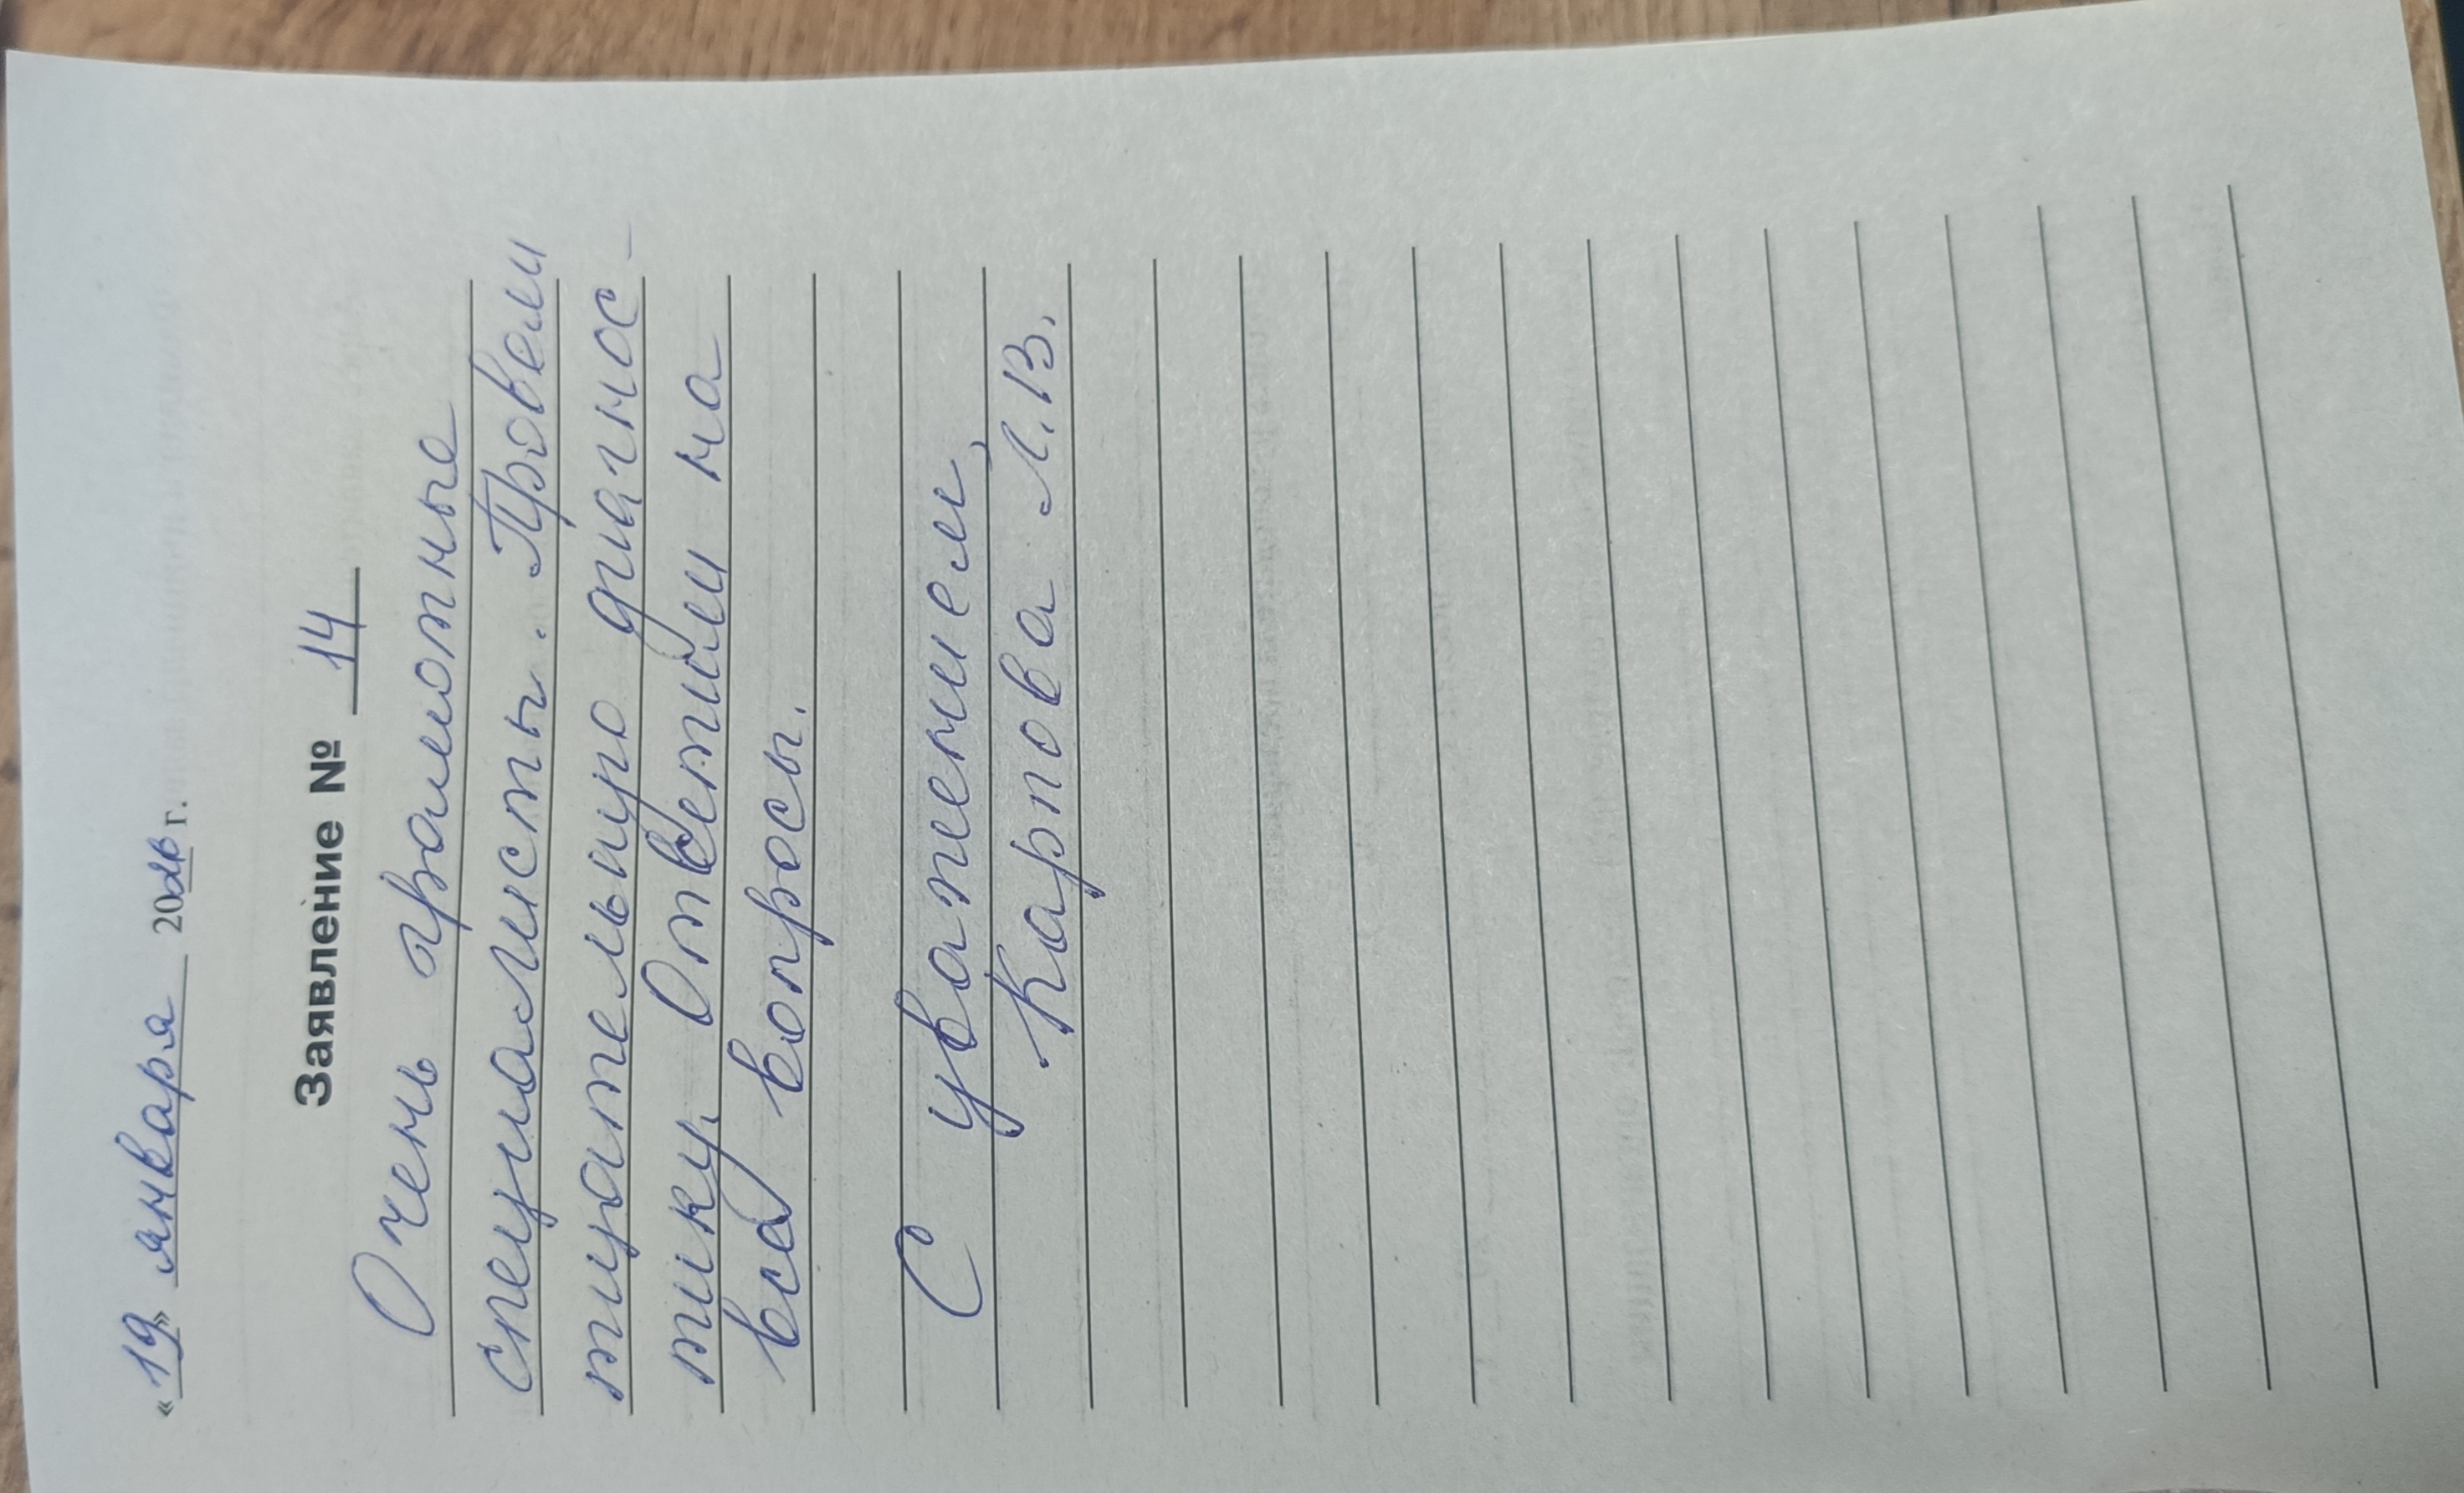 «19» января 2026 г.
Заявление № 14
Очень грамотные
специалисты. Провели
тщательную диагнос-
тику. Ответили на
все вопросы.
С уважением,
Карпова Л.В.